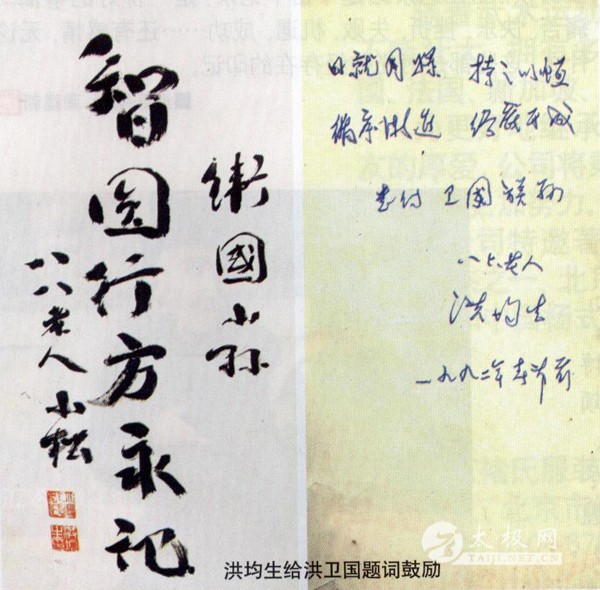 衛國小孫
智圆行方永记
八八老人 小松
日就月将 持之以恒
循序渐进 于成
书付 卫国 族孙
八六老人
洪均生
一九九二年春节前
太极网
TAIJI.NET.CN
洪均生给洪卫国题词鼓励